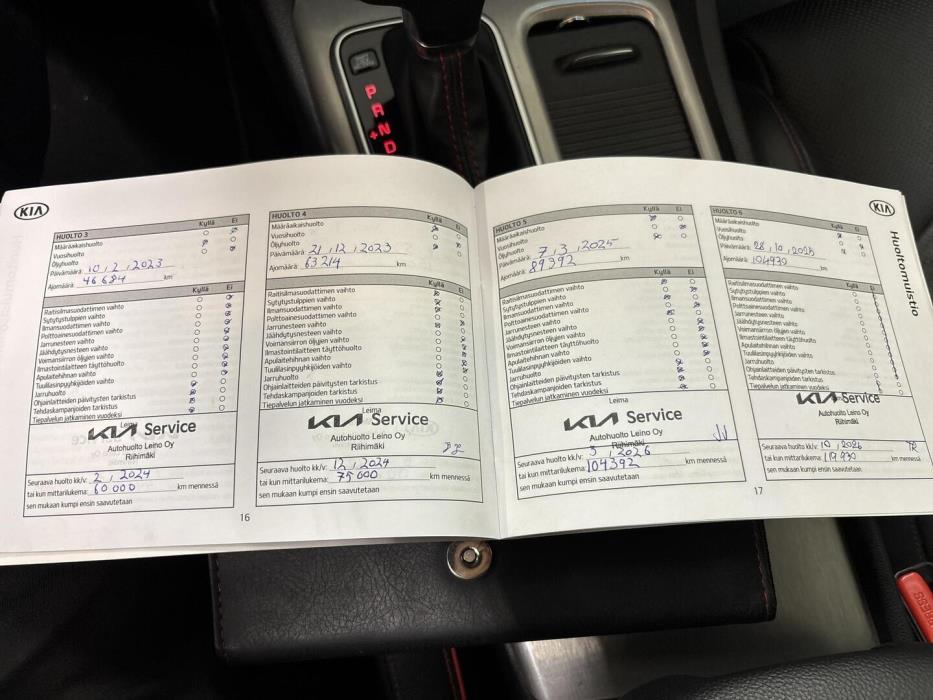 P
R
N
D
KIA
HUOLTO 3
Kyllä Ei
Määräaikaishuolto
Vuosihuolto
Öljyhuolto
Päivämäärä: 10,2,2023
Ajomäärä: 46 684 km
Kyllä Ei
Raitisilmasuodattimen vaihto
Sytytystulppien vaihto
Ilmansuodattimen vaihto
Polttoainesuodattimen vaihto
Jarrunesteen vaihto
Jäähdytysnesteen vaihto
Voimansiirron öljyjen vaihto
Ilmastointilaitteen täyttöhuolto
Apulaitehihnan vaihto
Tuulilasinpyyhkijöiden vaihto
Jarruhuolto
Ohjainlaitteiden päivitysten tarkistus
Tehdaskampanjoiden tarkistus
Tiepalvelun jatkaminen vuodeksi
Leima
KIA Service
Autohuolto Leino Oy
Riihimäki
Seuraava huolto kk/v: 2, 2024
tai kun mittarilukema: 60 000 km mennessä
sen mukaan kumpi ensin saavutetaan
HUOLTO 4
Kyllä Ei
Määräaikaishuolto
Vuosihuolto
Öljyhuolto
Päivämäärä: 21,12,2023
Ajomäärä: 63214 km
Kyllä Ei
Raitisilmasuodattimen vaihto
Sytytystulppien vaihto
Ilmansuodattimen vaihto
Polttoainesuodattimen vaihto
Jarrunesteen vaihto
Jäähdytysnesteen vaihto
Voimansiirron öljyjen vaihto
Ilmastointilaitteen täyttöhuolto
Apulaitehihnan vaihto
Tuulilasinpyyhkijöiden vaihto
Jarruhuolto
Ohjainlaitteiden päivitysten tarkistus
Tehdaskampanjoiden tarkistus
Tiepalvelun jatkaminen vuodeksi
Leima
KIA Service
Autohuolto Leino Oy
Riihimäki
Seuraava huolto kk/v: 12, 2024
tai kun mittarilukema: 75 000 km mennessä
sen mukaan kumpi ensin saavutetaan
16
HUOLTO 5
Kyllä Ei
Määräaikaishuolto
Vuosihuolto
Öljyhuolto
Päivämäärä: 7,3,2025
Ajomäärä: 89392 km
Kyllä Ei
Raitisilmasuodattimen vaihto
Sytytystulppien vaihto
Ilmansuodattimen vaihto
Polttoainesuodattimen vaihto
Jarrunesteen vaihto
Jäähdytysnesteen vaihto
Voimansiirron öljyjen vaihto
Ilmastointilaitteen täyttöhuolto
Apulaitehihnan vaihto
Tuulilasinpyyhkijöiden vaihto
Jarruhuolto
Ohjainlaitteiden päivitysten tarkistus
Tehdaskampanjoiden tarkistus
Tiepalvelun jatkaminen vuodeksi
Leima
KIA Service
Autohuolto Leino Oy
Riihimäki
Seuraava huolto kk/v: 3, 2026
tai kun mittarilukema: 104392 km mennessä
sen mukaan kumpi ensin saavutetaan
HUOLTO 6
Kyllä Ei
Määräaikaishuolto
Vuosihuolto
Öljyhuolto
Päivämäärä: 28,10,2025
Ajomäärä: 104930 km
Kyllä Ei
Raitisilmasuodattimen vaihto
Sytytystulppien vaihto
Ilmansuodattimen vaihto
Polttoainesuodattimen vaihto
Jarrunesteen vaihto
Jäähdytysnesteen vaihto
Voimansiirron öljyjen vaihto
Ilmastointilaitteen täyttöhuolto
Apulaitehihnan vaihto
Tuulilasinpyyhkijöiden vaihto
Jarruhuolto
Ohjainlaitteiden päivitysten tarkistus
Tehdaskampanjoiden tarkistus
Tiepalvelun jatkaminen vuodeksi
KIA Service
Autohuolto Leino Oy
Riihimäki
Seuraava huolto kk/v: 10, 2026
tai kun mittarilukema: 119930 km mennessä
sen mukaan kumpi ensin saavutetaan
17
KIA
Huoltomuistio
PRESS